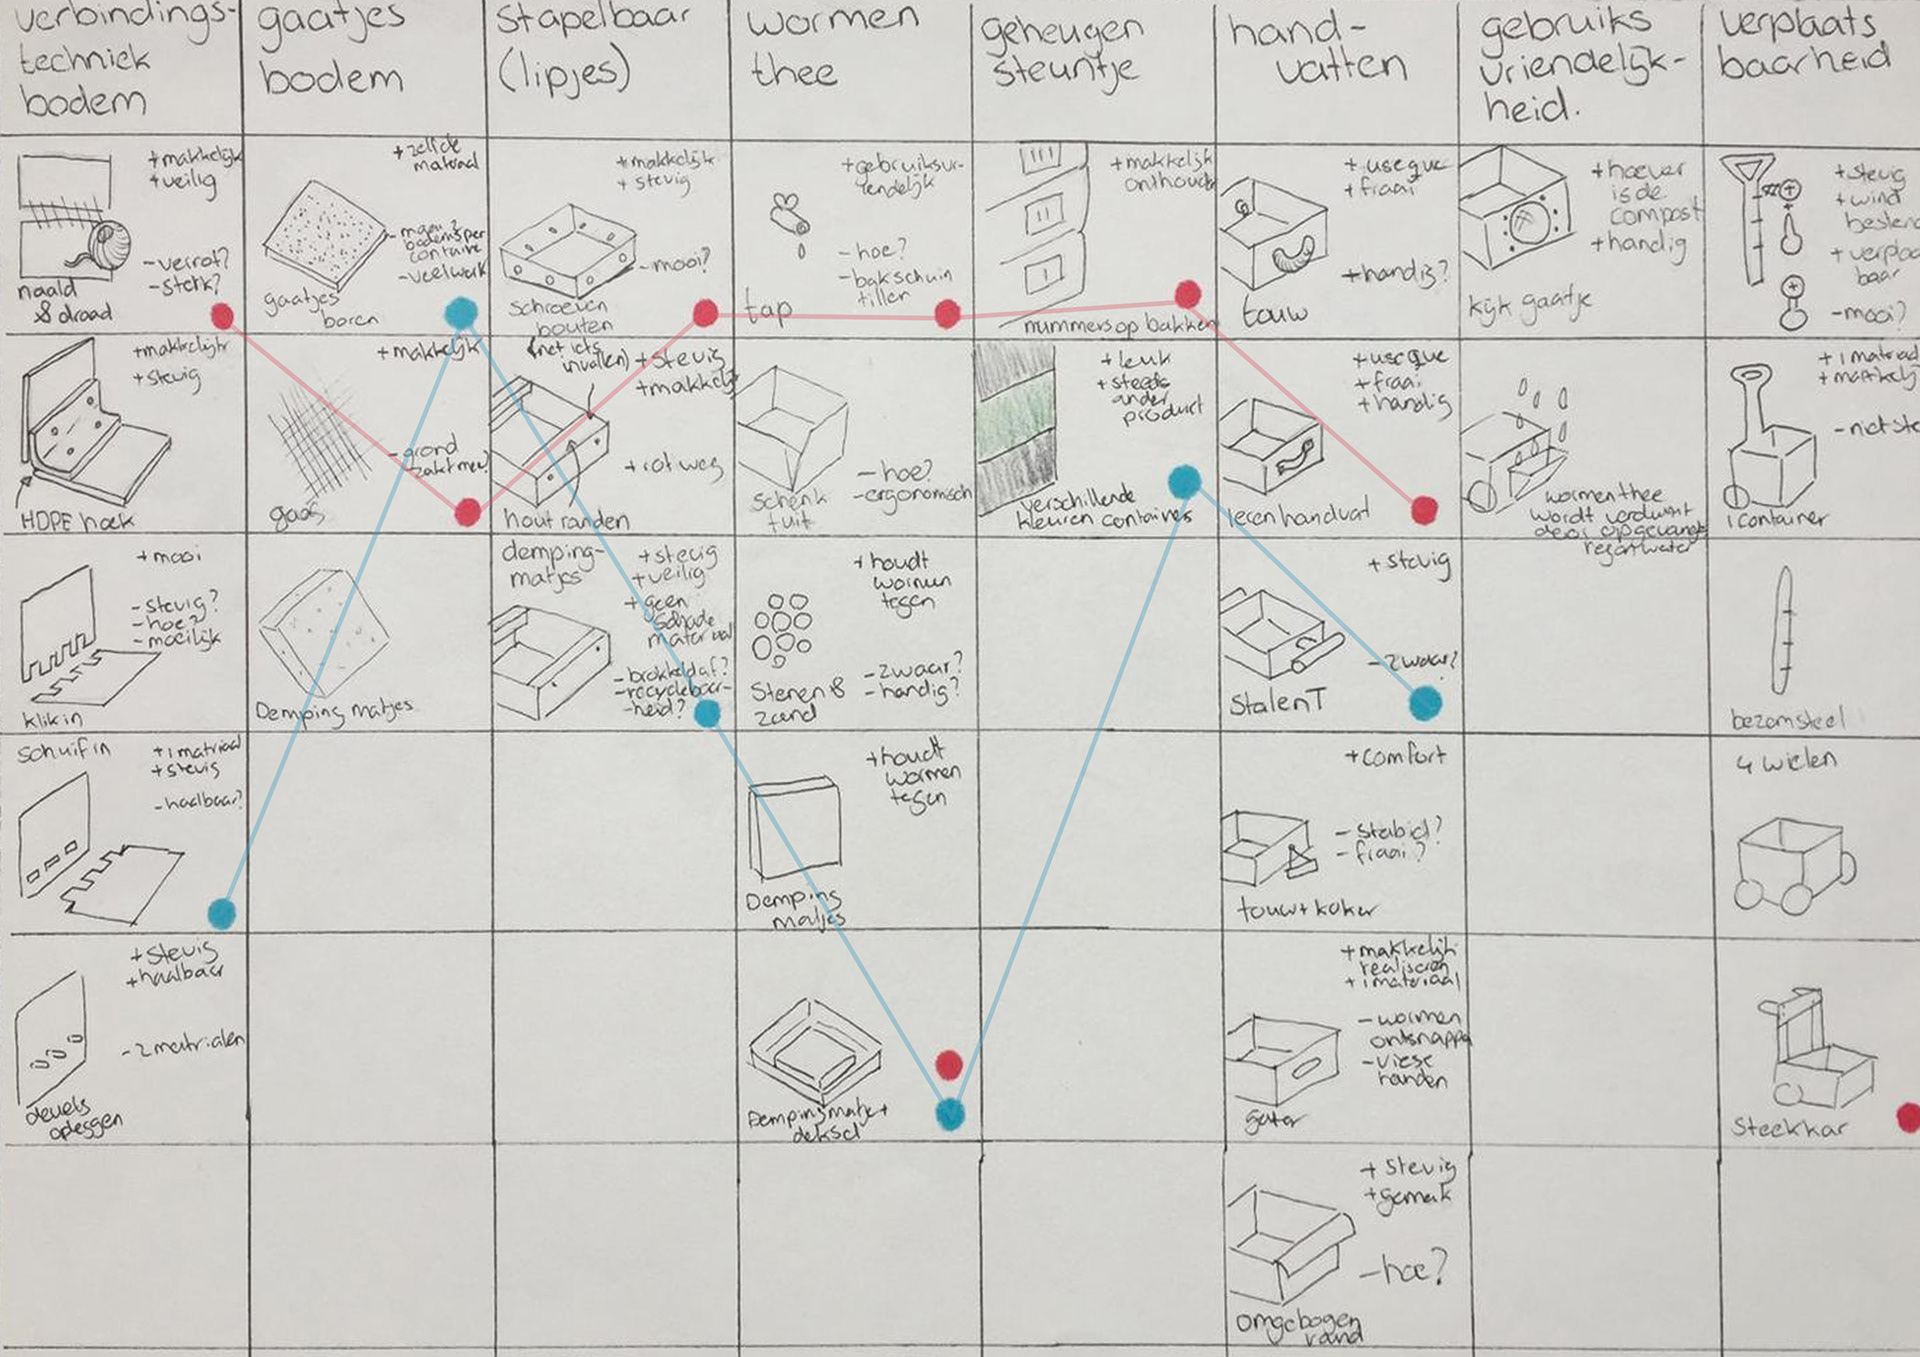 verbindings-
techniek
bodem
gaatjes
bodem
stapelbaar
(lipjes)
wormen
thee
geheugen
steuntje
hand-
vatten
gebruiks
vriendelijk-
heid.
verplaats
baarheid
+makkelijk
+veilig
-verrot?
-sterk?
naald
& draad
+zelfde
matriaal
bodems per
-veel werk
gaatjes
boren
+makkelijk
+stevig
-mooi?
schroeven
bouten
+gebruiksvr-
iendelijk
-hoe?
-bak schuin
tillen
tap
III
II
I
+makkelijk
onthouden
nummers op bakken
+fraai
+handig?
touw
+hoever
is de
compost
+handig
kijk gaatje
+stevig
+wind
+verplaa
baar
-mooi?
+makkelijk
+stevig
HDPE hoek
+makkelijk
-grond
zakt mee?
gaas
(net iets
invallen)
+stevig
+makkelijk
+rot weg
hout randen
-hoe?
-ergonomisch
schenk
tuit
+leuk
+steeds
ander
product
verschillende
kleuren containers
+fraai
+handig
leren handvat
wormenthee
wordt verdunt
door opgevangen
regenwater
+1 matriaal
+makkelij
-niet ste
1 container
+mooi
-stevig?
-hoe?
-moeilijk
klik in
Demping matjes
demping-
matjes
+stevig
+veilig
+geen
schade
materiaal
-brokkeld af?
-recyclebaar-
heid?
+houdt
wormen
tegen
-zwaar?
-handig?
Stenen &
zand
+stevig
-zwaar?
Stalen T
bezemsteel
schuif in
+1 matriaal
+stevig
-haalbaar?
+houdt
wormen
tegen
Demping
matjes
+comfort
-stabiel?
-fraai?
touw+koker
4 wielen
+stevig
+haalbaar
-2 matrialen
deuvels
opleggen
Dempingmatje+
deksel
+makkelijk
realiseren
+1 materiaal
-wormen
ontsnappen
-vieze
handen
gaten
Steekkar
+stevig
+gemak
-hoe?
omgebogen
rand